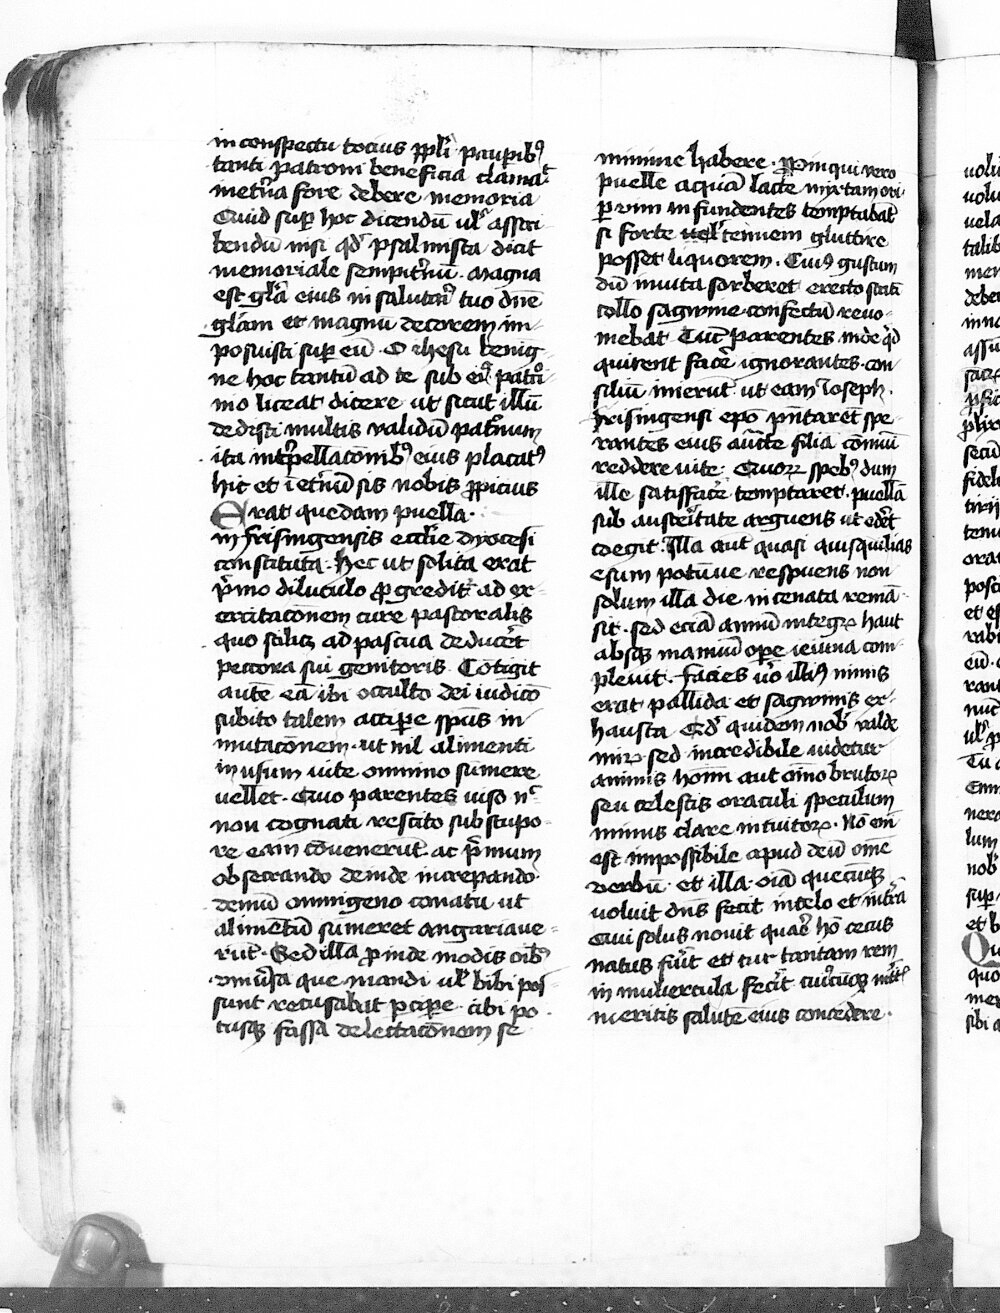 in conspectu tocius ppl̄i paupib⁹
tanti patroni beneficia clama
metīa fore debere memoria
Quid sup hoc dicendū ul᷑ assc̄i
bendū nisi qd᷑ psalmista dicit
memoriale sempitn̄ū. Magna
est gl̄a eius in salutar᷑ tuo dn̄e
gl̄am et magnū decorem im
posuisti sup eū. O ihesu benig
ne hoc tantū ad te sub ei⁹ patrͦ
nio liceat dicere ut sicut illū
dedisti multis validū patͦnum
ita intp̄ellacōnib⁹ eius placat⁹
hic et ī etn̄ū sis nobis ꝓpicius
Erat quedam puella.
in frisingensis ecc̄lie dyocesi
constituta. Hec ut solita erat
pͥmo diluculo ꝓgredit᷑ ad ex
ercitacōnem cure pastoralis
quo scilicꝫ ad pascua deducēt
peccora sui genitoris. Cōtigit
autē eā ibi occulto dei iudicō
subito talem accipe sp̄us in
mutacōnem. ut nil alimenti
in usum uite omnino sūmere
uellet. Quo parentes uiso n᷑
non cognati rescito sub stupo
re eam cōuenerūt. ac pͥmum
obsecrando deinde increpando
demū omnigeno conatu ut
alimētū sūmeret angariaue
rūt. Sed illa ꝓinde modis oīb⁹
om̄īsa que mandi ul᷑ bibi pos
sunt recusabat pcipe. cibi po
tusqꝫ fassa delectacōnem se
minime habere. Ꝓpinqui vero
puelle aquā lacte mixtam ori.
p vim infundentes temptabāt
si forte uel᷑ tenuem gluttire
posset liquorem. Cui⁹ gustum
dū inuita sorberet erecto stati
collo sagimine confectū reuo
mebat. Tūc parentes inde qͥd
quirent facē ignorantes. con
siliū inierūt. ut eam Joseph.
frisingensi ep̄o pn̄taret spe
rantes eius aūcte filia comūi
reddere uite. Quorꝝ speb⁹ dum
ille satisfacē temptaret. puellā
sub austeritate arguens ut edēt
coegit. Illa aut quasi quisquilias
esum potūue respuens non
solum illa die in cenata remā
sit. sed eciā annū integꝝ haut
absqꝫ mamiū ope ieiuna com
pleuit. Facies u͛o illi⁹ nimis
erat pallida et sagiminis ex
hausta. Qd᷑ quidem nob᷑ valde
mirꝝ sed incredibile uidetur
animis hoīm aut oīno brutorꝝ
seu celestis oraculi speculum
minus clare intuitorꝝ. Nō em̄
est impossibile apud deū om̄e
verbū. et illa. oīa quecūqꝫ
voluit dn̄s fecit in celo et in tr̄a
Qui solus nouit quar᷑ hō cecus
natus fūit et cur tantam rem
in muliercula fecīt cui⁹cūqꝫ
meritis salute eius concedere.